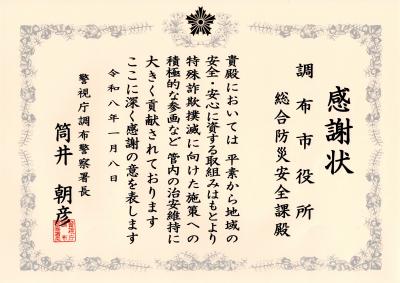 感謝状
調布市役所
総合防災安全課殿
貴殿においては 平素から地域の
安全・安心に資する取組みはもとより
特殊詐欺撲滅に向けた施策への
積極的な参画など 管内の治安維持に
大きく貢献されております
ここに深く感謝の意を表します
令和八年一月八日
警視庁調布警察署長
筒井 朝彦